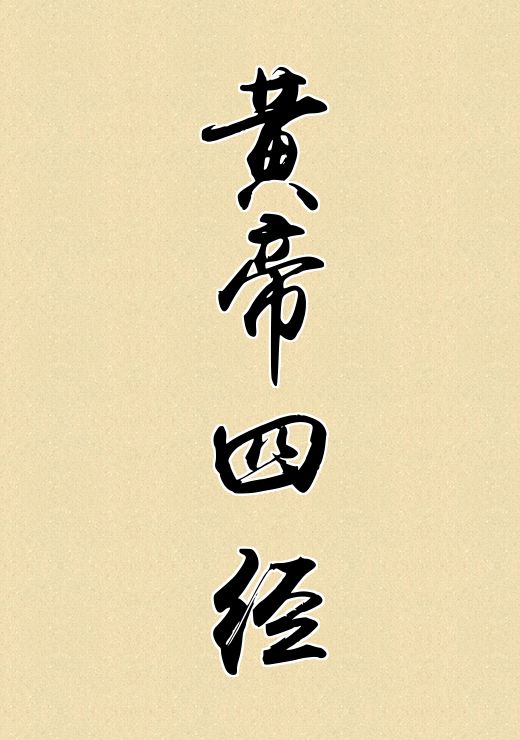 黄帝四经